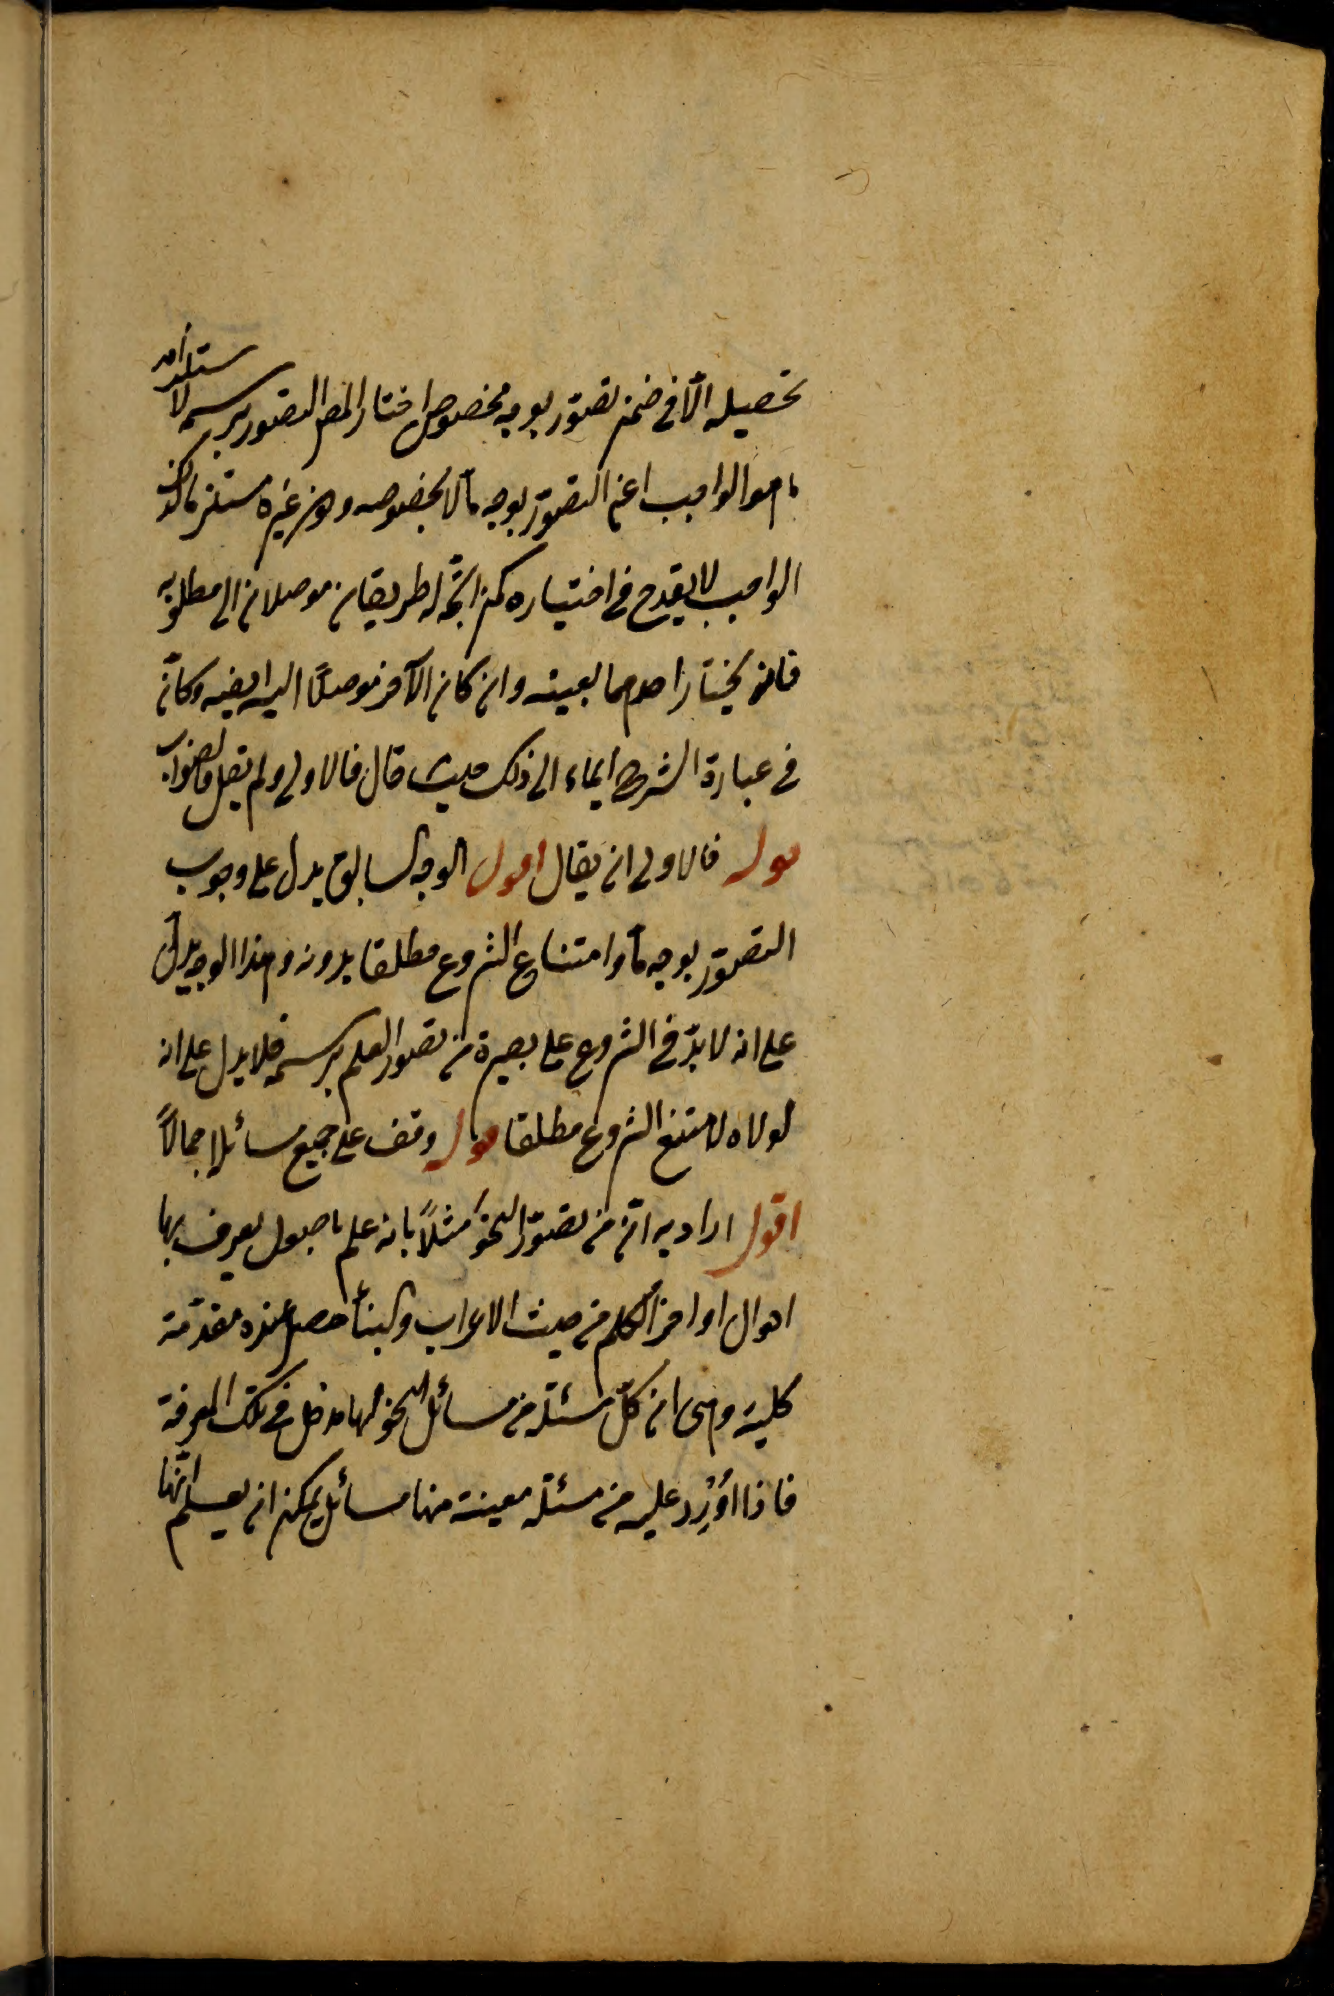 تحصيله الّا فى ضمن تصوّر بوجه مخصوص اختار المص التصور برسمه لاستلزامه
ما هو الواجب اعنى التصوّر بوجه مّا لا بخصوصه وكون غيره مستلزما لذلك
الواجب لا يقدح فى اختياره كمن اتّجه له طريقان موصلان الى مطلوبه
فانه يختار احدهما بعينه وان كان الآخر موصلًا اليه ايضا وكانّ
فى عبارة الشرح ايماء الى ذلك حيث قال فالاولى ولم يقل فالصّواب
قوله فالاولى ان يقال اقول الوجه السابق يدل على وجوب
التصوّر بوجه مّا وامتناع الشروع مطلقا بدونه وهذا الوجه يدلّ
على انه لا بدّ فى الشروع على بصيرة من تصور العلم برسمه فلا يدل على انه
لولاه لامتنع الشروع مطلقا قوله وقف على جميع مسائله اجمالًا
اقول اراد به انّ من تصوّر النحو مثلًا بانه علم باصول يعرف بها
احوال اواخر الكلم من حيث الاعراب والبناء حصل عنده مقدّمة
كلية وهى ان كلّ مسئلة من مسائل النحو لها مدخل فى تلك المعرفة
فاذا اُوْرِد عليه من مسئلة معينة منها مسائل يمكن ان يعلم انّها